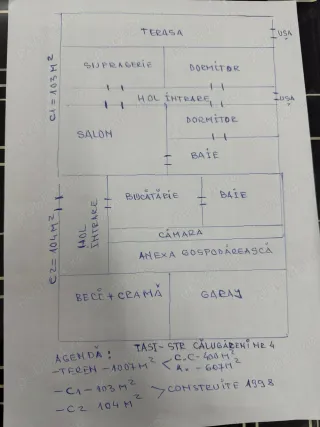 TERASA
UȘA
SUFRAGERIE
DORMITOR
C1 = 103 M²
HOL INTRARE
UȘA
DORMITOR
SALON
BAIE
BUCĂTĂRIE
BAIE
HOL INTRARE
C2 = 104 M²
CĂMARA
ANEXA GOSPODĂREASCĂ
BECI + CRAMĂ
GARAJ
IAȘI - STR CĂLUGĂRENI NR 4
AGENDĂ:
- TEREN - 1007 M² C.C - 400 M²
A. - 607 M²
- C1 - 103 M²
CONSTRUITE 1998
- C2 104 M²